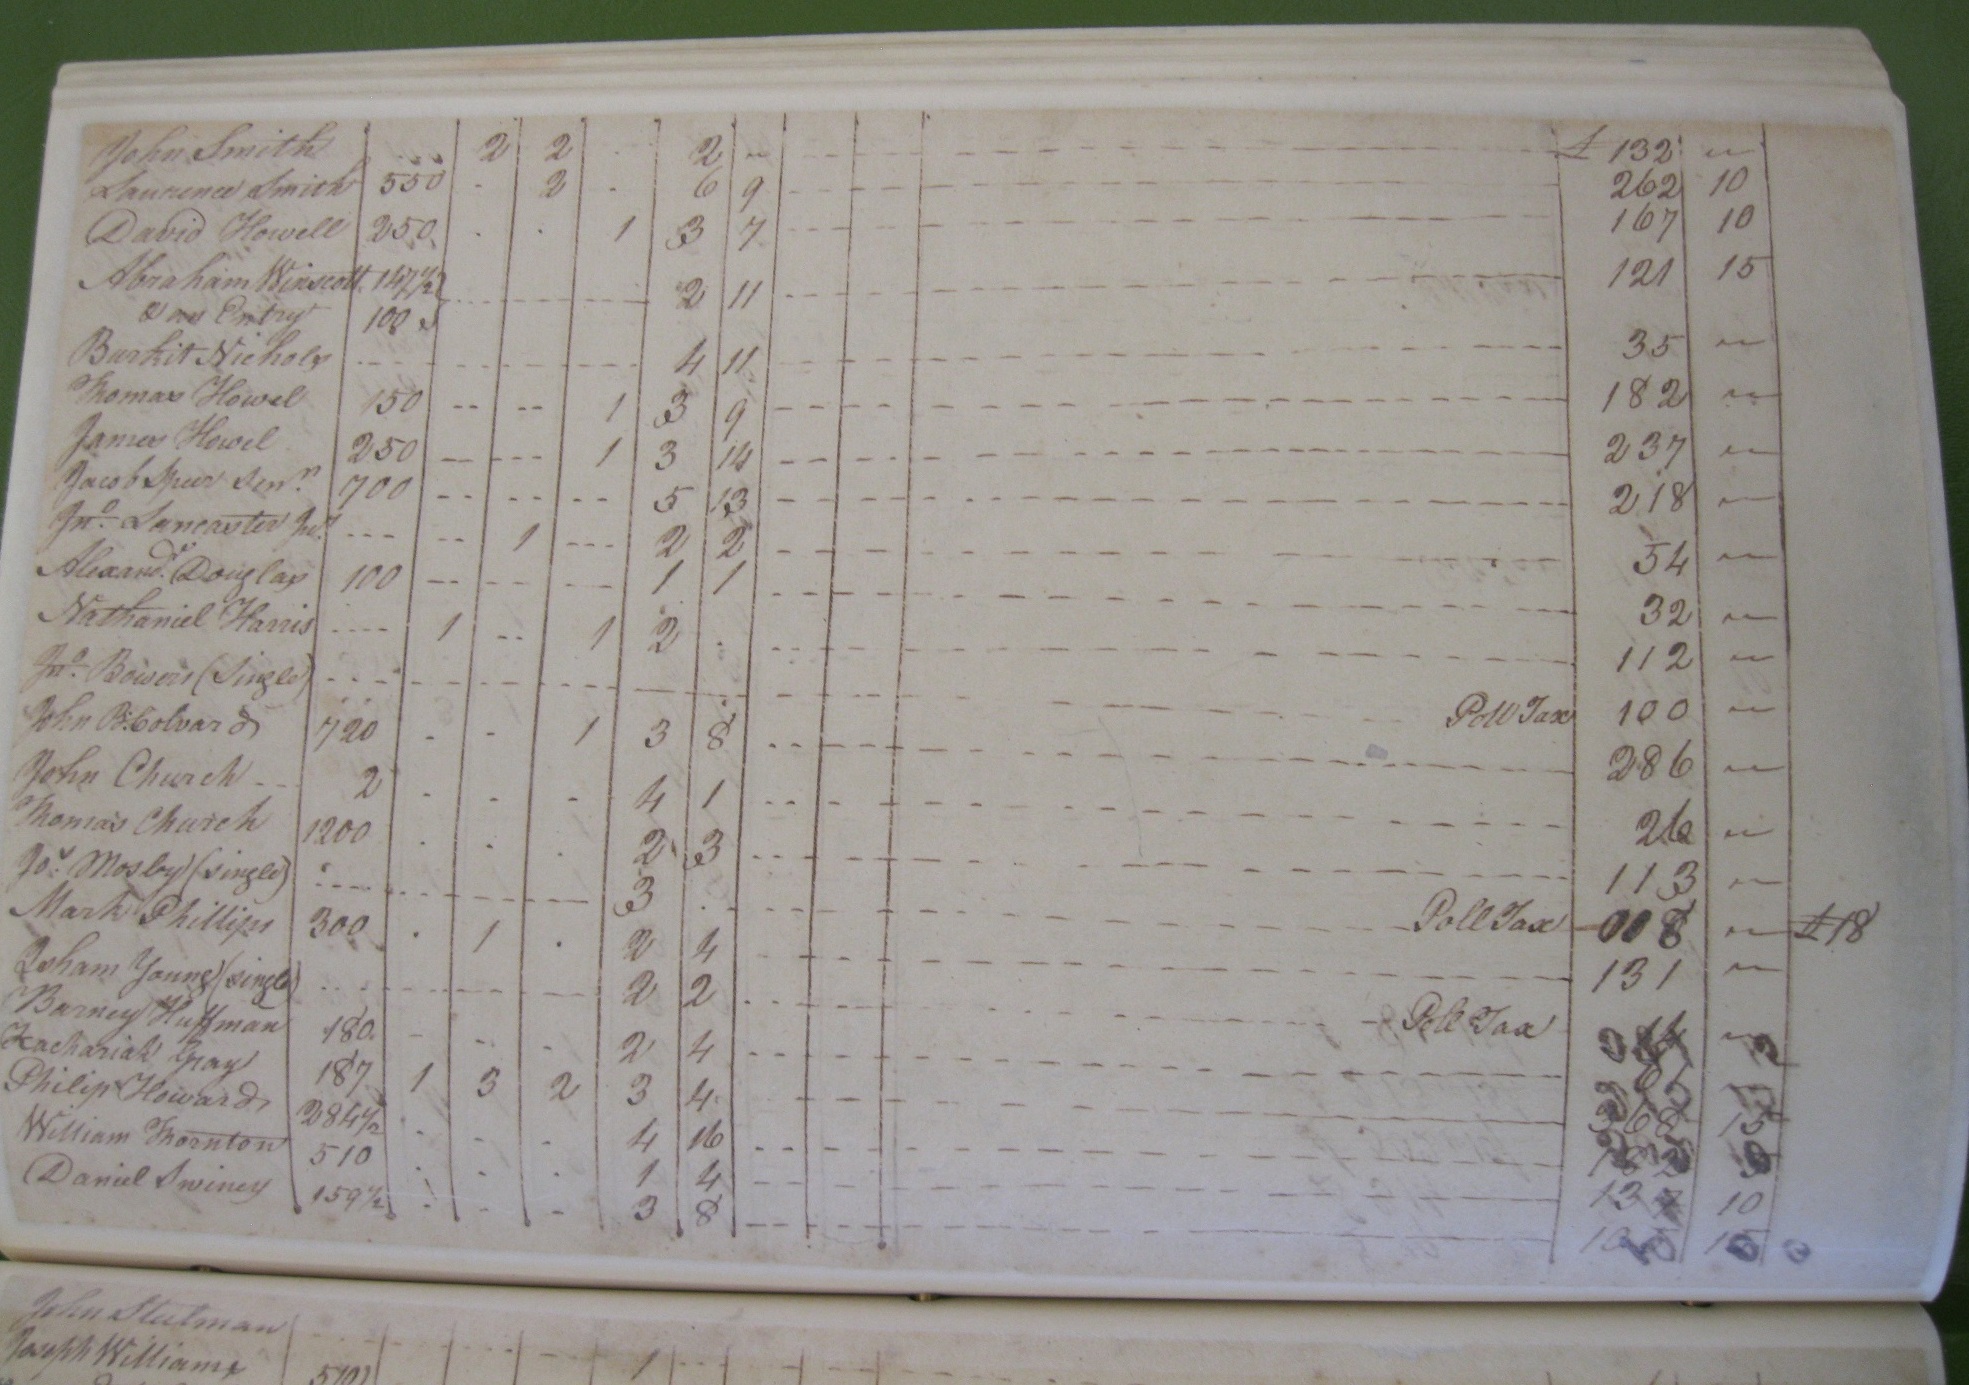 John Smith .... 2 2 . 2 " £ 132 "
Laurence Smith 550 . 2 . 6 9 262 10
David Howell 250 . . 1 3 7 167 10
Abraham Winscott 147½ 2 11 121 15
& an Entry 100
Burkit Nichols 4 11 35 "
Thomas Howel 150 -- -- 1 3 9 182 "
James Howel 250 -- --- 1 3 14 237 "
Jacob Speer Senr. 700 -- -- -- 5 13 218 "
Jno. Lancaster --- -- 1 --- 2 2 54 "
Alexandr. Douglas 100 -- -- -- 1 1 32 "
Nathaniel Harris ---- 1 -- 1 2 . 112 "
Jno. Bowers (Single) Poll Tax 100 "
John Colvard 720 . - 1 3 8 286 "
John Church -- 2 . . - 4 1 26 "
Thomas Church 1200 . . . 2 3 113 "
Jos. Mosby (single) 3 . Poll Tax 8 " £18
Mark Phillips 300 . 1 . 2 4 131 "
Isham Young (single) 2 2 Poll Tax "
Barney Huffman 180 . - . 2 4
Zachariah Gray 187 1 3 2 3 4 368 15
Philip Howard 284½ . - . 4 16
William Thornton 510 . . . 1 4 10
Daniel Swiney 159½ . - - 3 8
John Stulman
Joseph Williams 510 1